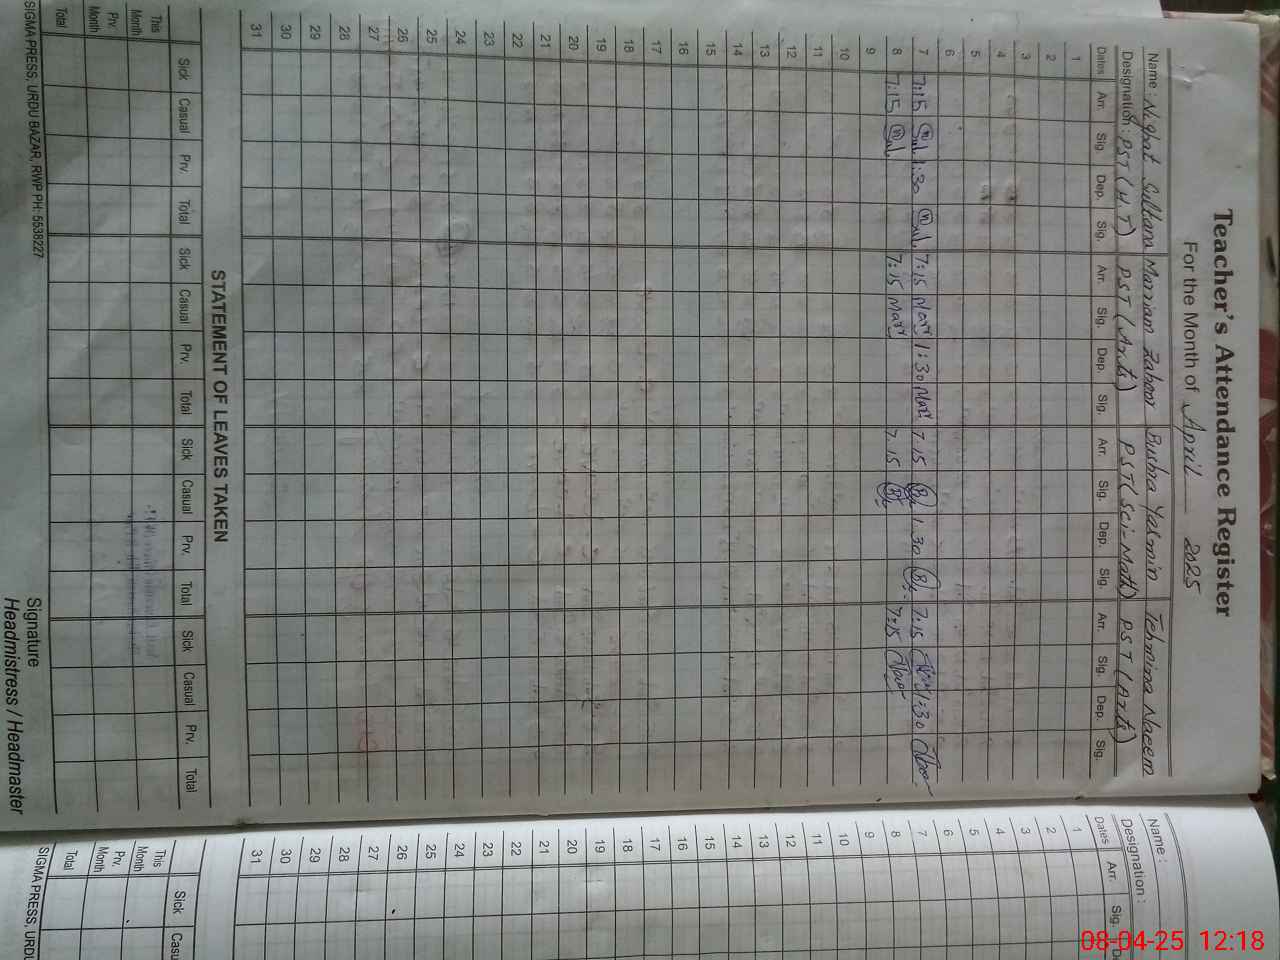 Teacher's Attendance Register
For the Month of April 2025
Name : Nighat Sultana Marriam Zahoor Bushra Yasmin Tehmina Naeem
Designation : PST (H.T) PST (Arts) PST (Sci-Math) PST (Arts)
Dates Arr. Sig. Dep. Sig. Arr. Sig. Dep. Sig. Arr. Sig. Dep. Sig. Arr. Sig. Dep. Sig.
1
2
3
4
5
6
7 7:15 1:30 7:15 Mary 1:30 Mary 7.15 1.30 7:15 1:30
8 7:15 7:15 Mary 7.15 7:15
9
10
11
12
13
14
15
16
17
18
19
20
21
22
23
24
25
26
27
28
29
30
31
STATEMENT OF LEAVES TAKEN
Sick Casual Prv. Total Sick Casual Prv. Total Sick Casual Prv. Total Sick Casual Prv. Total
This Month
Prv. Month
Total
Signature
Headmistress / Headmaster
SIGMA PRESS, URDU BAZAR, RWP PH: 5538227
Name :
Designation :
Dates Arr. Sig.
1
2
3
4
5
6
7
8
9
10
11
12
13
14
15
16
17
18
19
20
21
22
23
24
25
26
27
28
29
30
31
Sick
This Month
Prv. Month
Total
SIGMA PRESS,
08-04-25 12:18